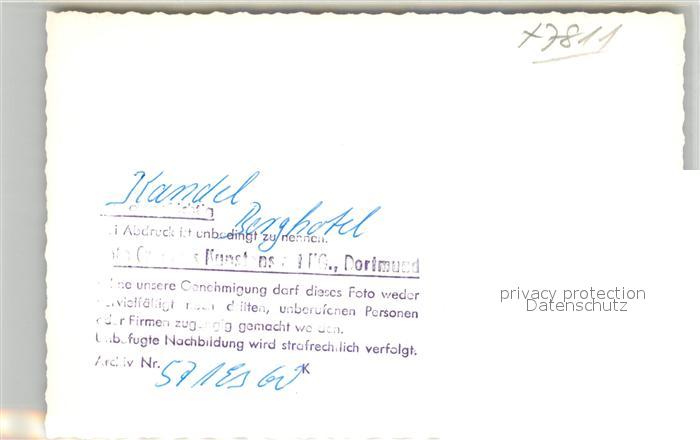 x7811
Kandel
Berghotel
Abdruck ist unbedingt zu nennen.
Kunstanst KG., Dortmund
unsere Genehmigung darf dieses Foto weder
vervielfältigt noch dritten, unberufenen Personen
oder Firmen zugängig gemacht werden.
Unbefugte Nachbildung wird strafrechtlich verfolgt.
Archiv Nr.
K
privacy protection
Datenschutz